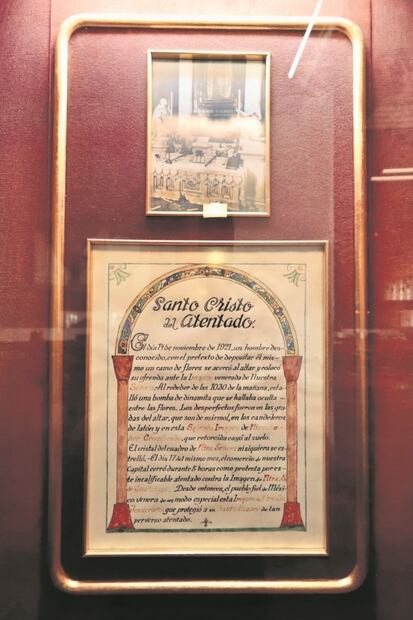 Santo Cristo
del Atentado.
El día 14 de noviembre de 1921, un hombre des-
conocido, con el pretexto de depositar él mis-
mo un ramo de flores se acercó al altar y colocó
su ofrenda ante la Imagen venerada de Nuestra
Señora. Al rededor de las 10.30 de la mañana, esta-
lló una bomba de dinamita que se hallaba oculta
entre las flores. Los desperfectos fueron en las gra-
das del altar, que son de mármol, en los candeleros
de latón y en esta Sagrada Imagen de
que retorcida cayó al suelo.
El cristal del cuadro de Ntra. Señora ni siquiera se es-
trelló. El día 17 del mismo mes, el comercio de nuestra
Capital cerró durante 5 horas como protesta por es-
te incalificable atentado contra la Imagen de Ntra. S.
de Guadalupe. Desde entonces, el pueblo fiel de Méxi-
co venera de un modo especial esta Imagen de
Jesucristo, que protegió a su Santa Madre de tan
perverso atentado.